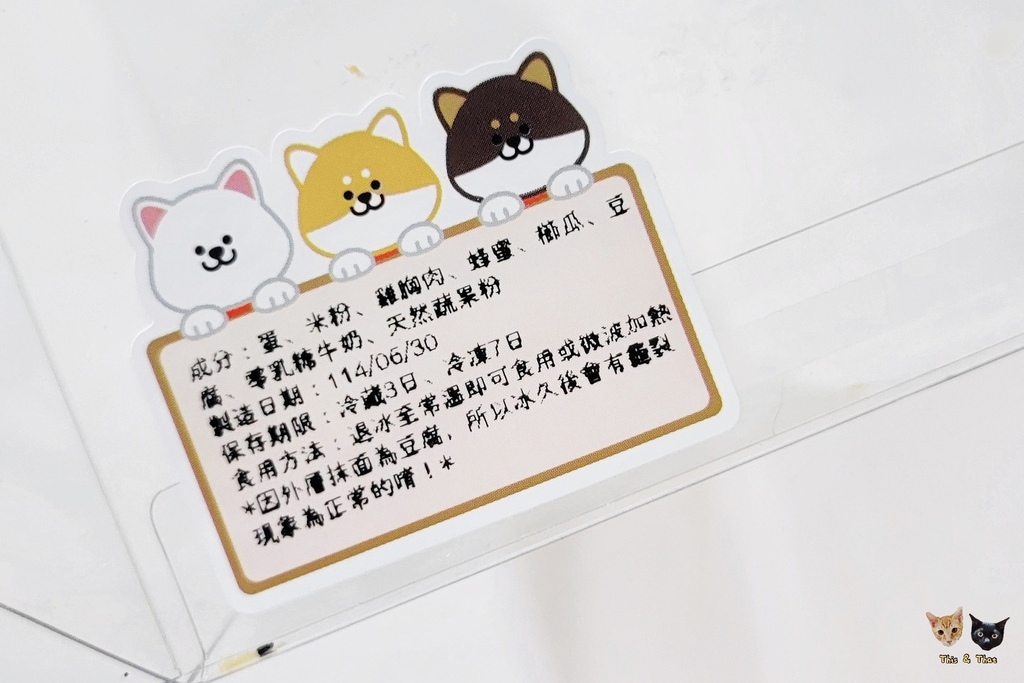 成分：蛋、米粉、雞胸肉、蜂蜜、櫛瓜、豆
腐、零乳糖牛奶、天然蔬果粉
製造日期：114/06/30
保存期限：冷藏3日、冷凍7日
食用方法：退冰至常溫即可食用或微波加熱
*因外層抹面為豆腐，所以冰久後會有龜裂
現象為正常的唷！*
This & That